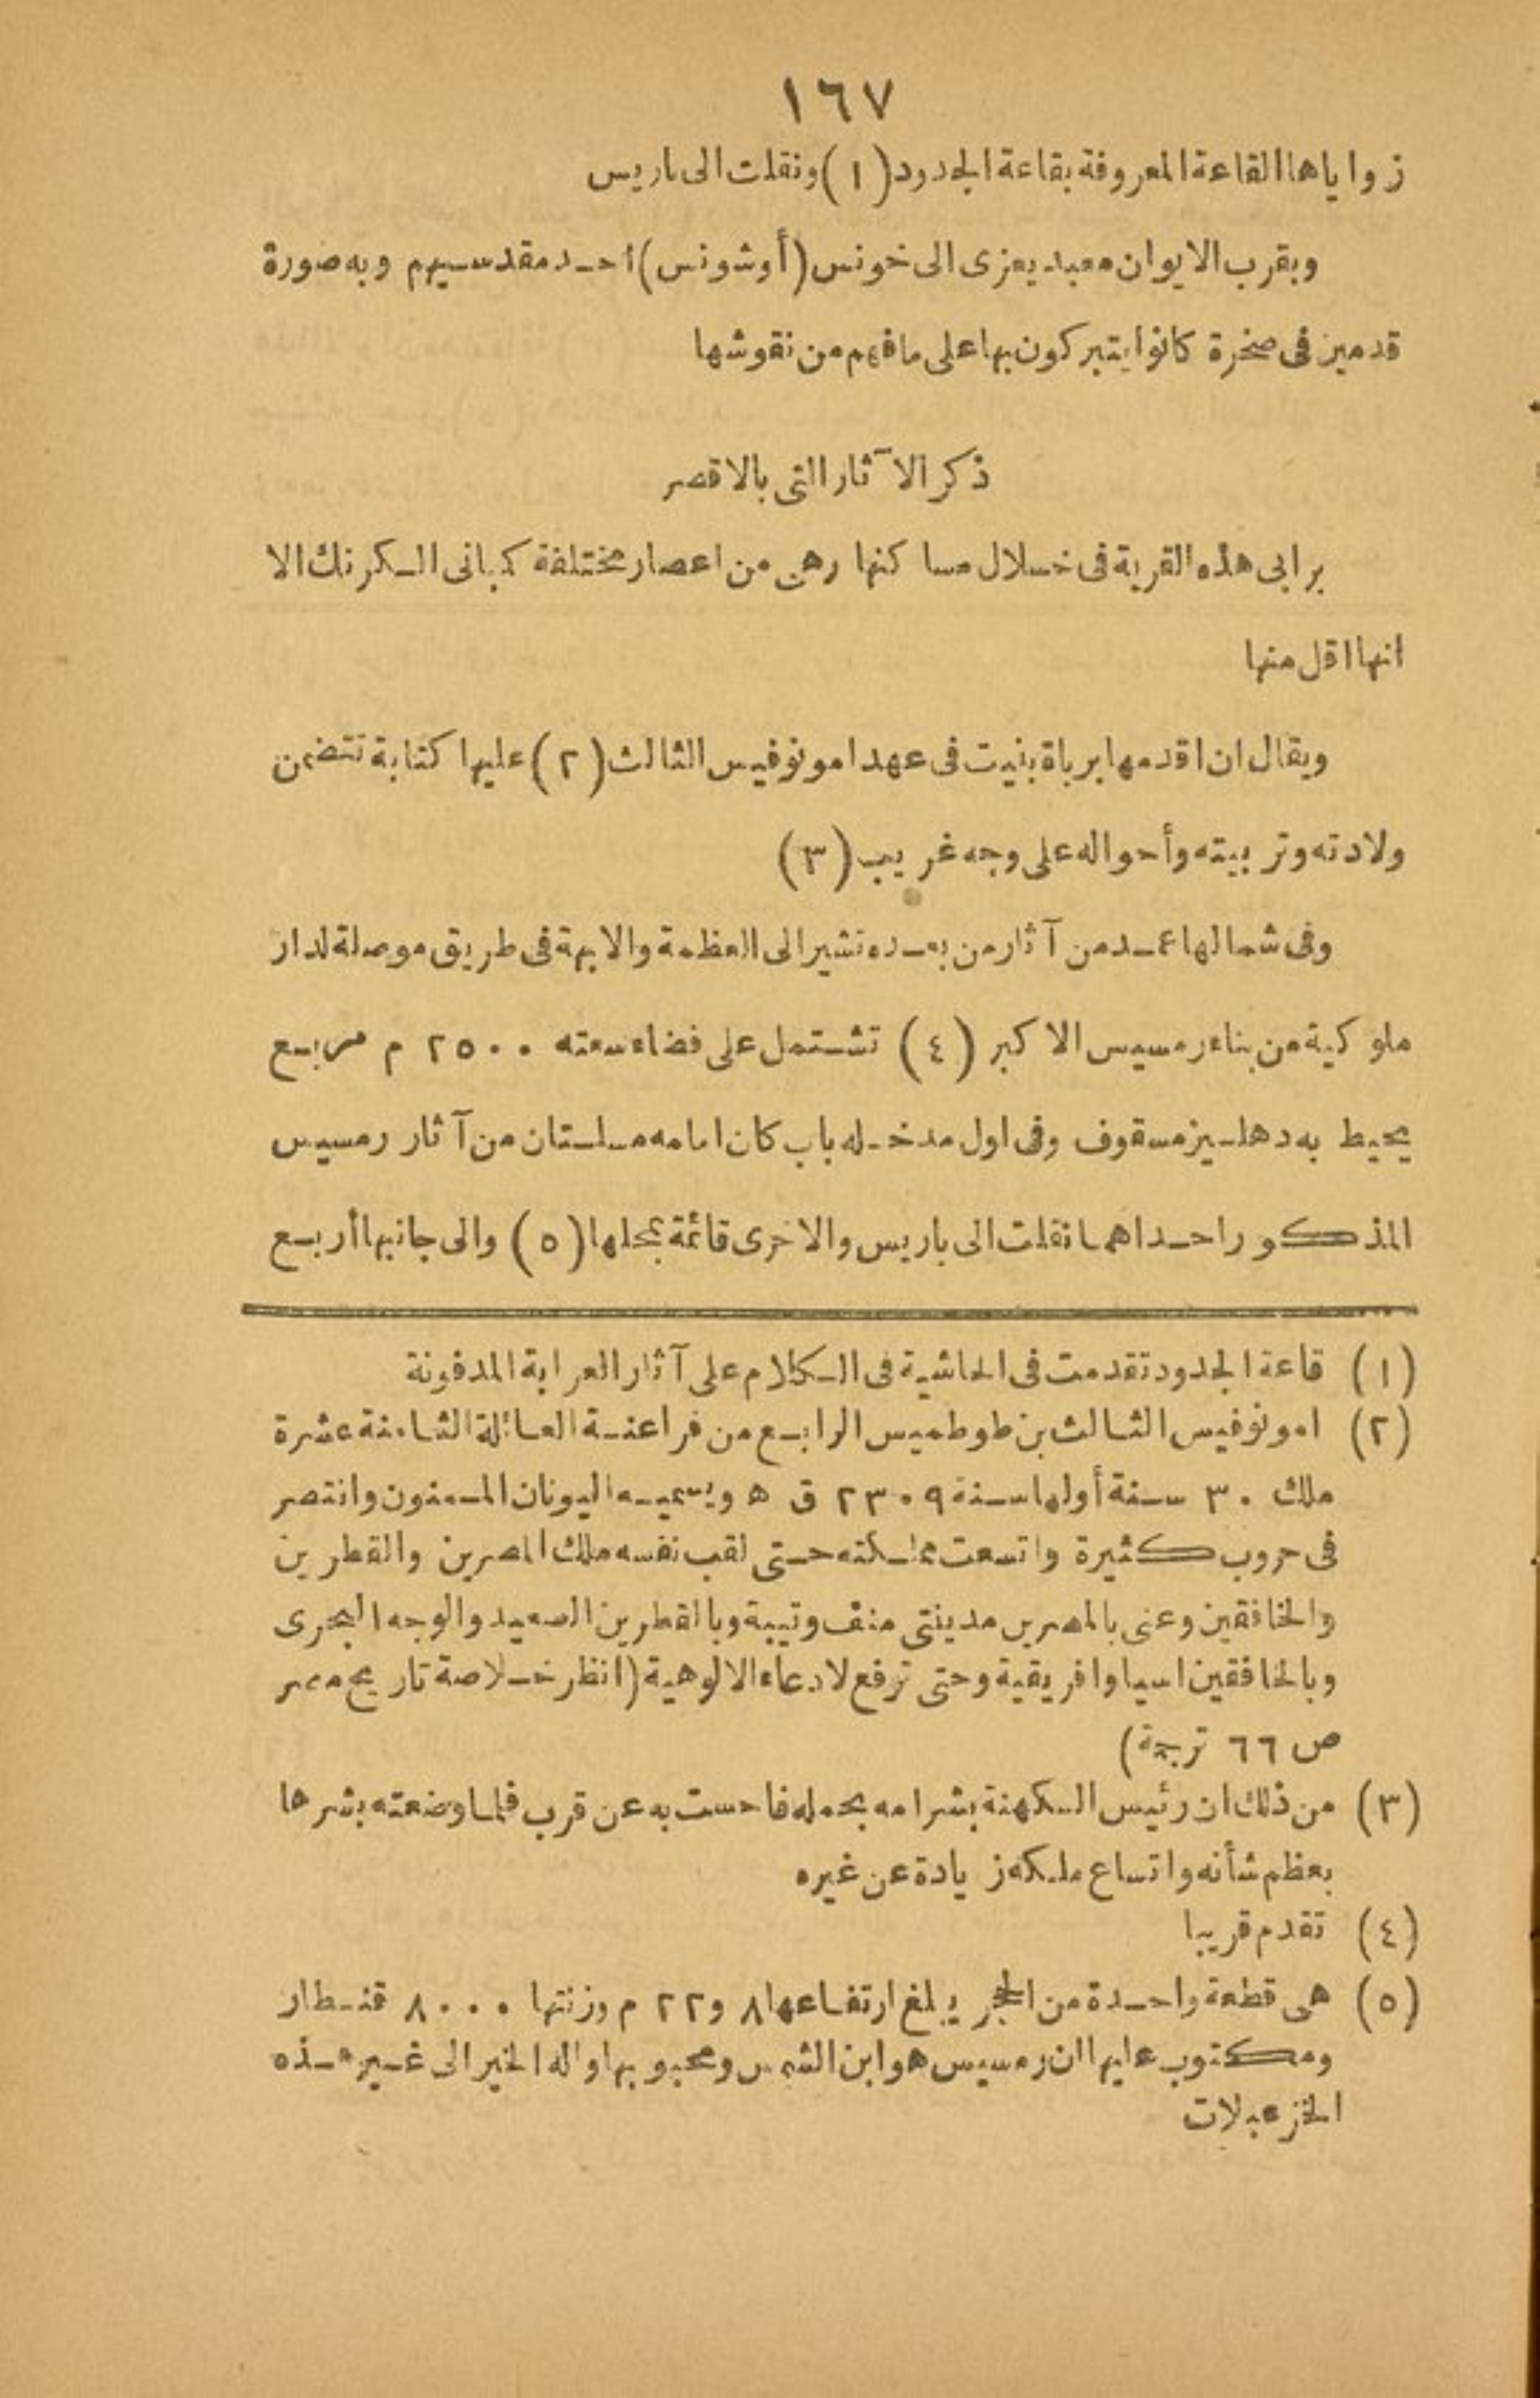 ١٦٧
زواياها القاعة المعروفة بقاعة الجدود (١) ونقلت الى باريس
وبقرب الايوان معبد يعزى الى خونس (أوشونس) احد مقدسيهم وبه صورة
قدمين فى صخرة كانوا يتبركون بها على ما فهم من نقوشها
ذكر الآثار التى بالاقصر
برابى هذه القرية فى خلال مساكنها وهى من اعصار مختلفة كبانى الكرنك الا
انها اقل منها
ويقال ان اقدمها برباة بنيت فى عهد امونوفيس الثالث (٢) عليها كتابة تتضمن
ولادته وتربيته وأحواله على وجه غريب (٣)
وفى شمالها عمد من آثار من بعده تشير الى العظمة والابهة فى طريق موصلة لدار
ملوكية من بناء رمسيس الاكبر (٤) تشتمل على فضاء سعته ٢٥٠٠ م مربع
يحيط به دهليز مسقوف وفى اول مدخله باب كان امامه مسلتان من آثار رمسيس
المذكور احداهما نقلت الى باريس والاخرى قائمة بمحلها (٥) والى جانبها أربع
(١) قاعة الجدود تقدمت فى الحاشية فى الكلام على آثار العرابة المدفونة
(٢) امونوفيس الثالث بن طوطميس الرابع من فراعنة العائلة الثامنة عشرة
ملك ٣٠ سنة أولها سنة ٢٣٠٩ ق ه ويسميه اليونان الممنون وانتصر
فى حروب كثيرة واتسعت مملكته حتى لقب نفسه ملك المصرين والقطرين
والخافقين وعنى بالمصرين مدينتى منف وتيبة وبالقطرين الصعيد والوجه البحرى
وبالخافقين اسيا وافريقية وحتى ترفع لادعاء الالوهية (انظر خلاصة تاريخ مصر
ص ٦٦ ترجمة)
(٣) من ذلك ان رئيس الكهنة بشر امه بحمله فاحست به عن قرب فلما وضعته بشرها
بعظم شأنه واتساع ملكه زيادة عن غيره
(٤) تقدم قريبا
(٥) هى قطعة واحدة من الحجر يبلغ ارتفاعها ٨ و٢٢ م وزنتها ٨٠٠٠ قنطار
ومكتوب عليها ان رمسيس هو ابن الشمس ومحبوبها واله الخير الى غير هذه
الخزعبلات